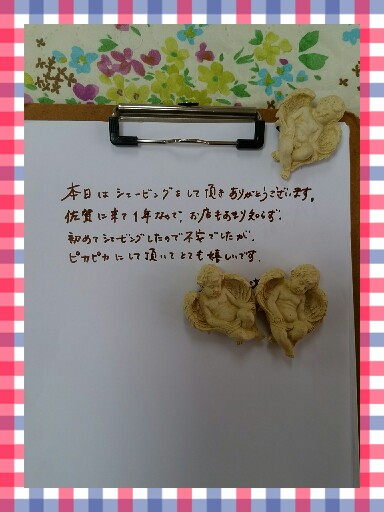 本日は シェービングをして頂き ありがとうございます。
佐賀に来て1年なので、お店もあまり知らず、
初めてシェービングしたので不安でしたが、
ピカピカにして頂いてとても嬉しいです。